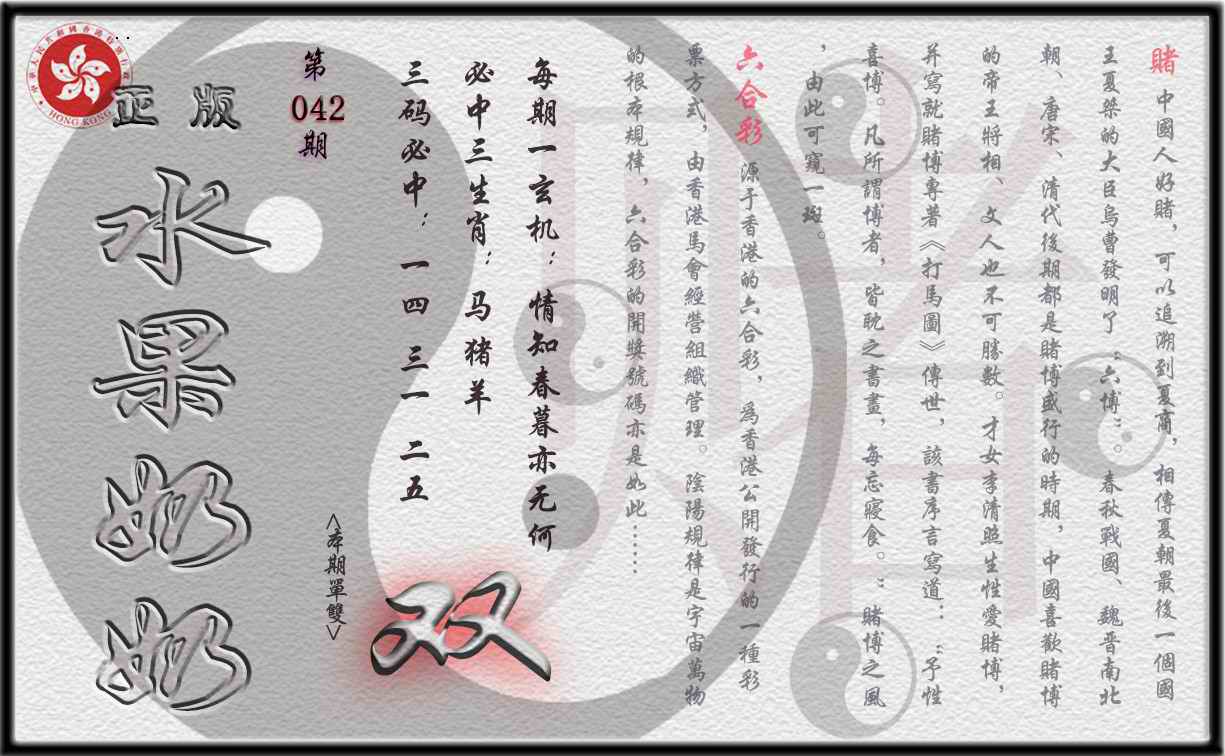 中華人民共和國香港特別行政區
HONG KONG
正版
水果奶奶
第
042
期
三码必中：一四 三一 二五
必中三生肖：马猪羊
每期一玄机：情知春暮亦无何
<本期單雙>
双
賭 中國人好賭，可以追溯到夏商，相傳夏朝最後一個國
王夏桀的大臣烏曹發明了“六博”。春秋戰國、魏晋南北
朝、唐宋、清代後期都是賭博盛行的時期，中國喜歡賭博
的帝王將相、文人也不可勝數。才女李清照生性愛賭博，
并寫就賭博專著《打馬圖》傳世，該書序言寫道：“予性
喜博。凡所謂博者，皆耽之書晝，每忘寢食。”賭博之風
，由此可窺一斑。
六合彩 源于香港的六合彩，爲香港公開發行的一種彩
票方式，由香港馬會經營組織管理。陰陽規律是宇宙萬物
的根本規律，六合彩的開獎號碼亦是如此……
賭